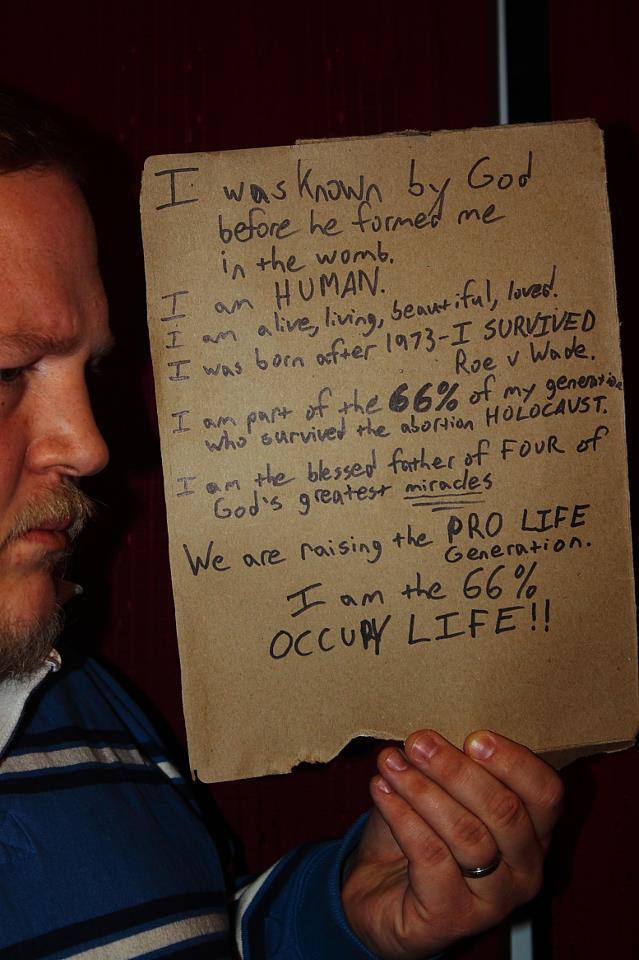 I was known by God
before he formed me
in the womb.
I am HUMAN.
I am alive, living, beautiful, loved.
I was born after 1973-I SURVIVED
Roe v Wade.
I am part of the 66% of my generation
who survived the abortion HOLOCAUST.
I am the blessed father of FOUR of
God's greatest miracles
We are raising the PRO LIFE
Generation.
I am the 66%
OCCUPY LIFE!!